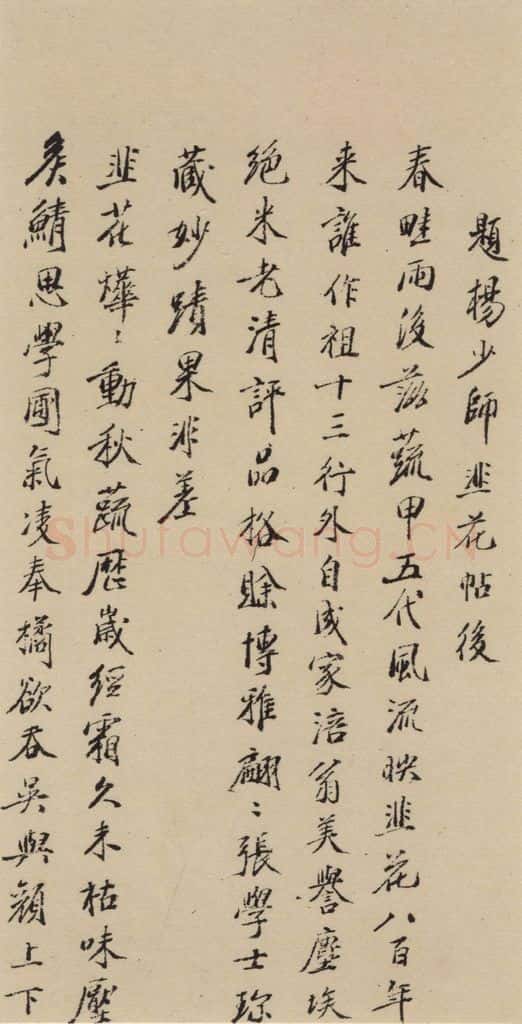 題楊少師韭花帖後
春畦雨後茲蔬甲五代風流映韭花八百年
来誰作祖十三行外自成家涪翁美譽塵埃
絕米老清評品格賒博雅翩〻張學士珎
藏妙蹟果非差
韭花𦾓〻動秋蔬歷歲經霜久未枯味壓
矦鯖思學圃氣凌奉橘欲吞吳與顏上下
Shufawang.CN